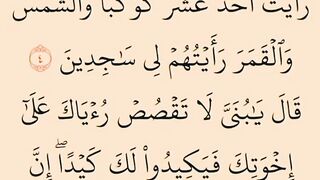 رَأَيْتُ أَحَدَ عَشَرَ كَوْكَبًا وَٱلشَّمْسَ
وَٱلْقَمَرَ رَأَيْتُهُمْ لِى سَٰجِدِينَ ٤
قَالَ يَٰبُنَىَّ لَا تَقْصُصْ رُءْيَاكَ عَلَىٰٓ
إِخْوَتِكَ فَيَكِيدُوا۟ لَكَ كَيْدًا ۖ إِنَّ